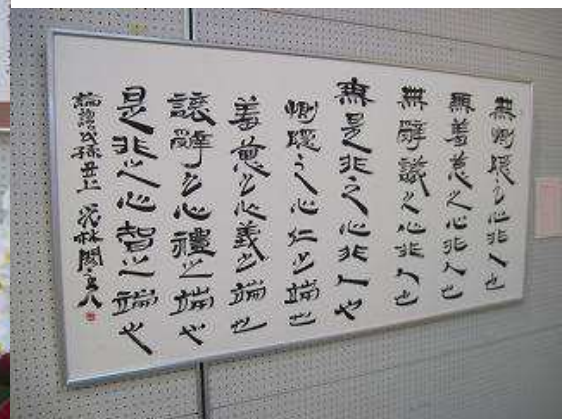 無惻隱之心非人也
無羞惡之心非人也
無辭讓之心非人也
無是非之心非人也
惻隱之心仁之端也
羞惡之心義之端也
讓辭之心禮之端也
是非之心智之端也
公孫丑上